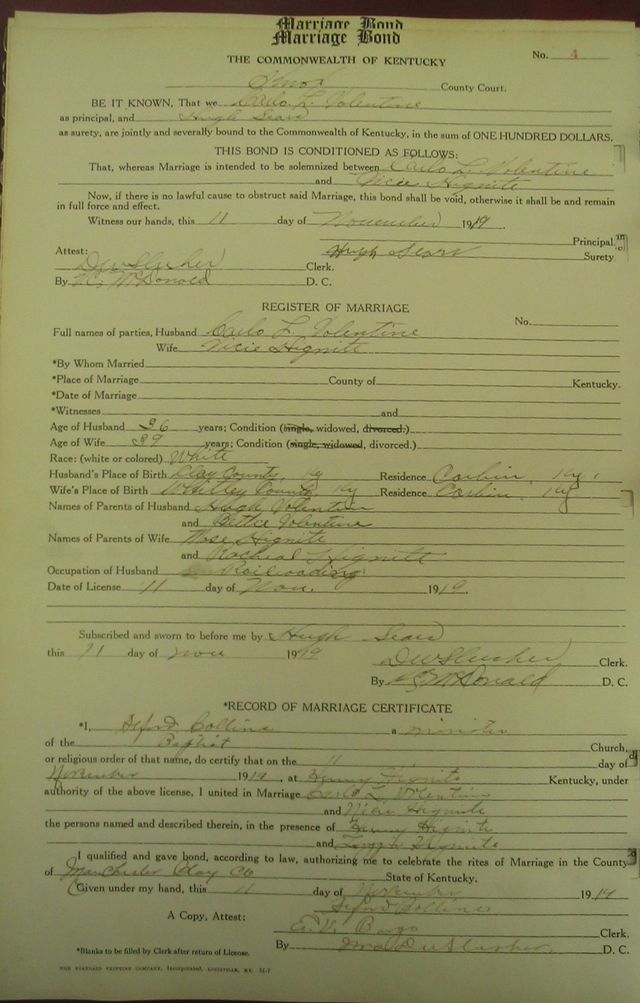 Marriage Bond
Marriage Bond
THE COMMONWEALTH OF KENTUCKY
No. 4
Knox County Court.
BE IT KNOWN, That we Carlo L. Volentine
as principal, and Hugh Sears
as surety, are jointly and severally bound to the Commonwealth of Kentucky, in the sum of ONE HUNDRED DOLLARS.
THIS BOND IS CONDITIONED AS FOLLOWS:
That, whereas Marriage is intended to be solemnized between Carlo L. Volentine
and Vicie Hignite
Now, if there is no lawful cause to obstruct said Marriage, this bond shall be void, otherwise it shall be and remain
in full force and effect.
Witness our hands, this 11 day of November 1919.
Principal
Attest: Hugh Sears Surety
D W Slusher Clerk.
By McDonald D. C.
REGISTER OF MARRIAGE
No.
Full names of parties, Husband Carlo L. Volentine
Wife Vicie Hignite
*By Whom Married
*Place of Marriage County of Kentucky.
*Date of Marriage
*Witnesses and
Age of Husband 36 years; Condition (single, widowed, divorced.)
Age of Wife 39 years; Condition (single, widowed, divorced.)
Race: (white or colored) White
Husband's Place of Birth Clay County, Ky Residence Corbin, Ky.
Wife's Place of Birth Whitley County, Ky Residence Corbin, Ky
Names of Parents of Husband Hugh Volentine
and Bettie Volentine
Names of Parents of Wife Mose Hignite
and Rachial Hignite
Occupation of Husband Railroading
Date of License 11 day of Nov. 1919.
Subscribed and sworn to before me by Hugh Sears
this 11 day of Nov 1919
D W Slusher Clerk.
By McDonald D. C.
*RECORD OF MARRIAGE CERTIFICATE
*I, Collins a minister
of the Baptist Church,
or religious order of that name, do certify that on the 11 day of
November 1919, at Henry Hignite Kentucky, under
authority of the above license, I united in Marriage Carlo L Volentine
and Vicie Hignite
the persons named and described therein, in the presence of Henry Hignite
and Hignite
I qualified and gave bond, according to law, authorizing me to celebrate the rites of Marriage in the County
of Manchester Clay Co State of Kentucky.
Given under my hand, this 11 day of November 1919
Collins
A Copy, Attest:
Clerk.
By Slusher D. C.
*Blanks to be filled by Clerk after return of License.
THE STANDARD PRINTING COMPANY, Incorporated, LOUISVILLE, KY.